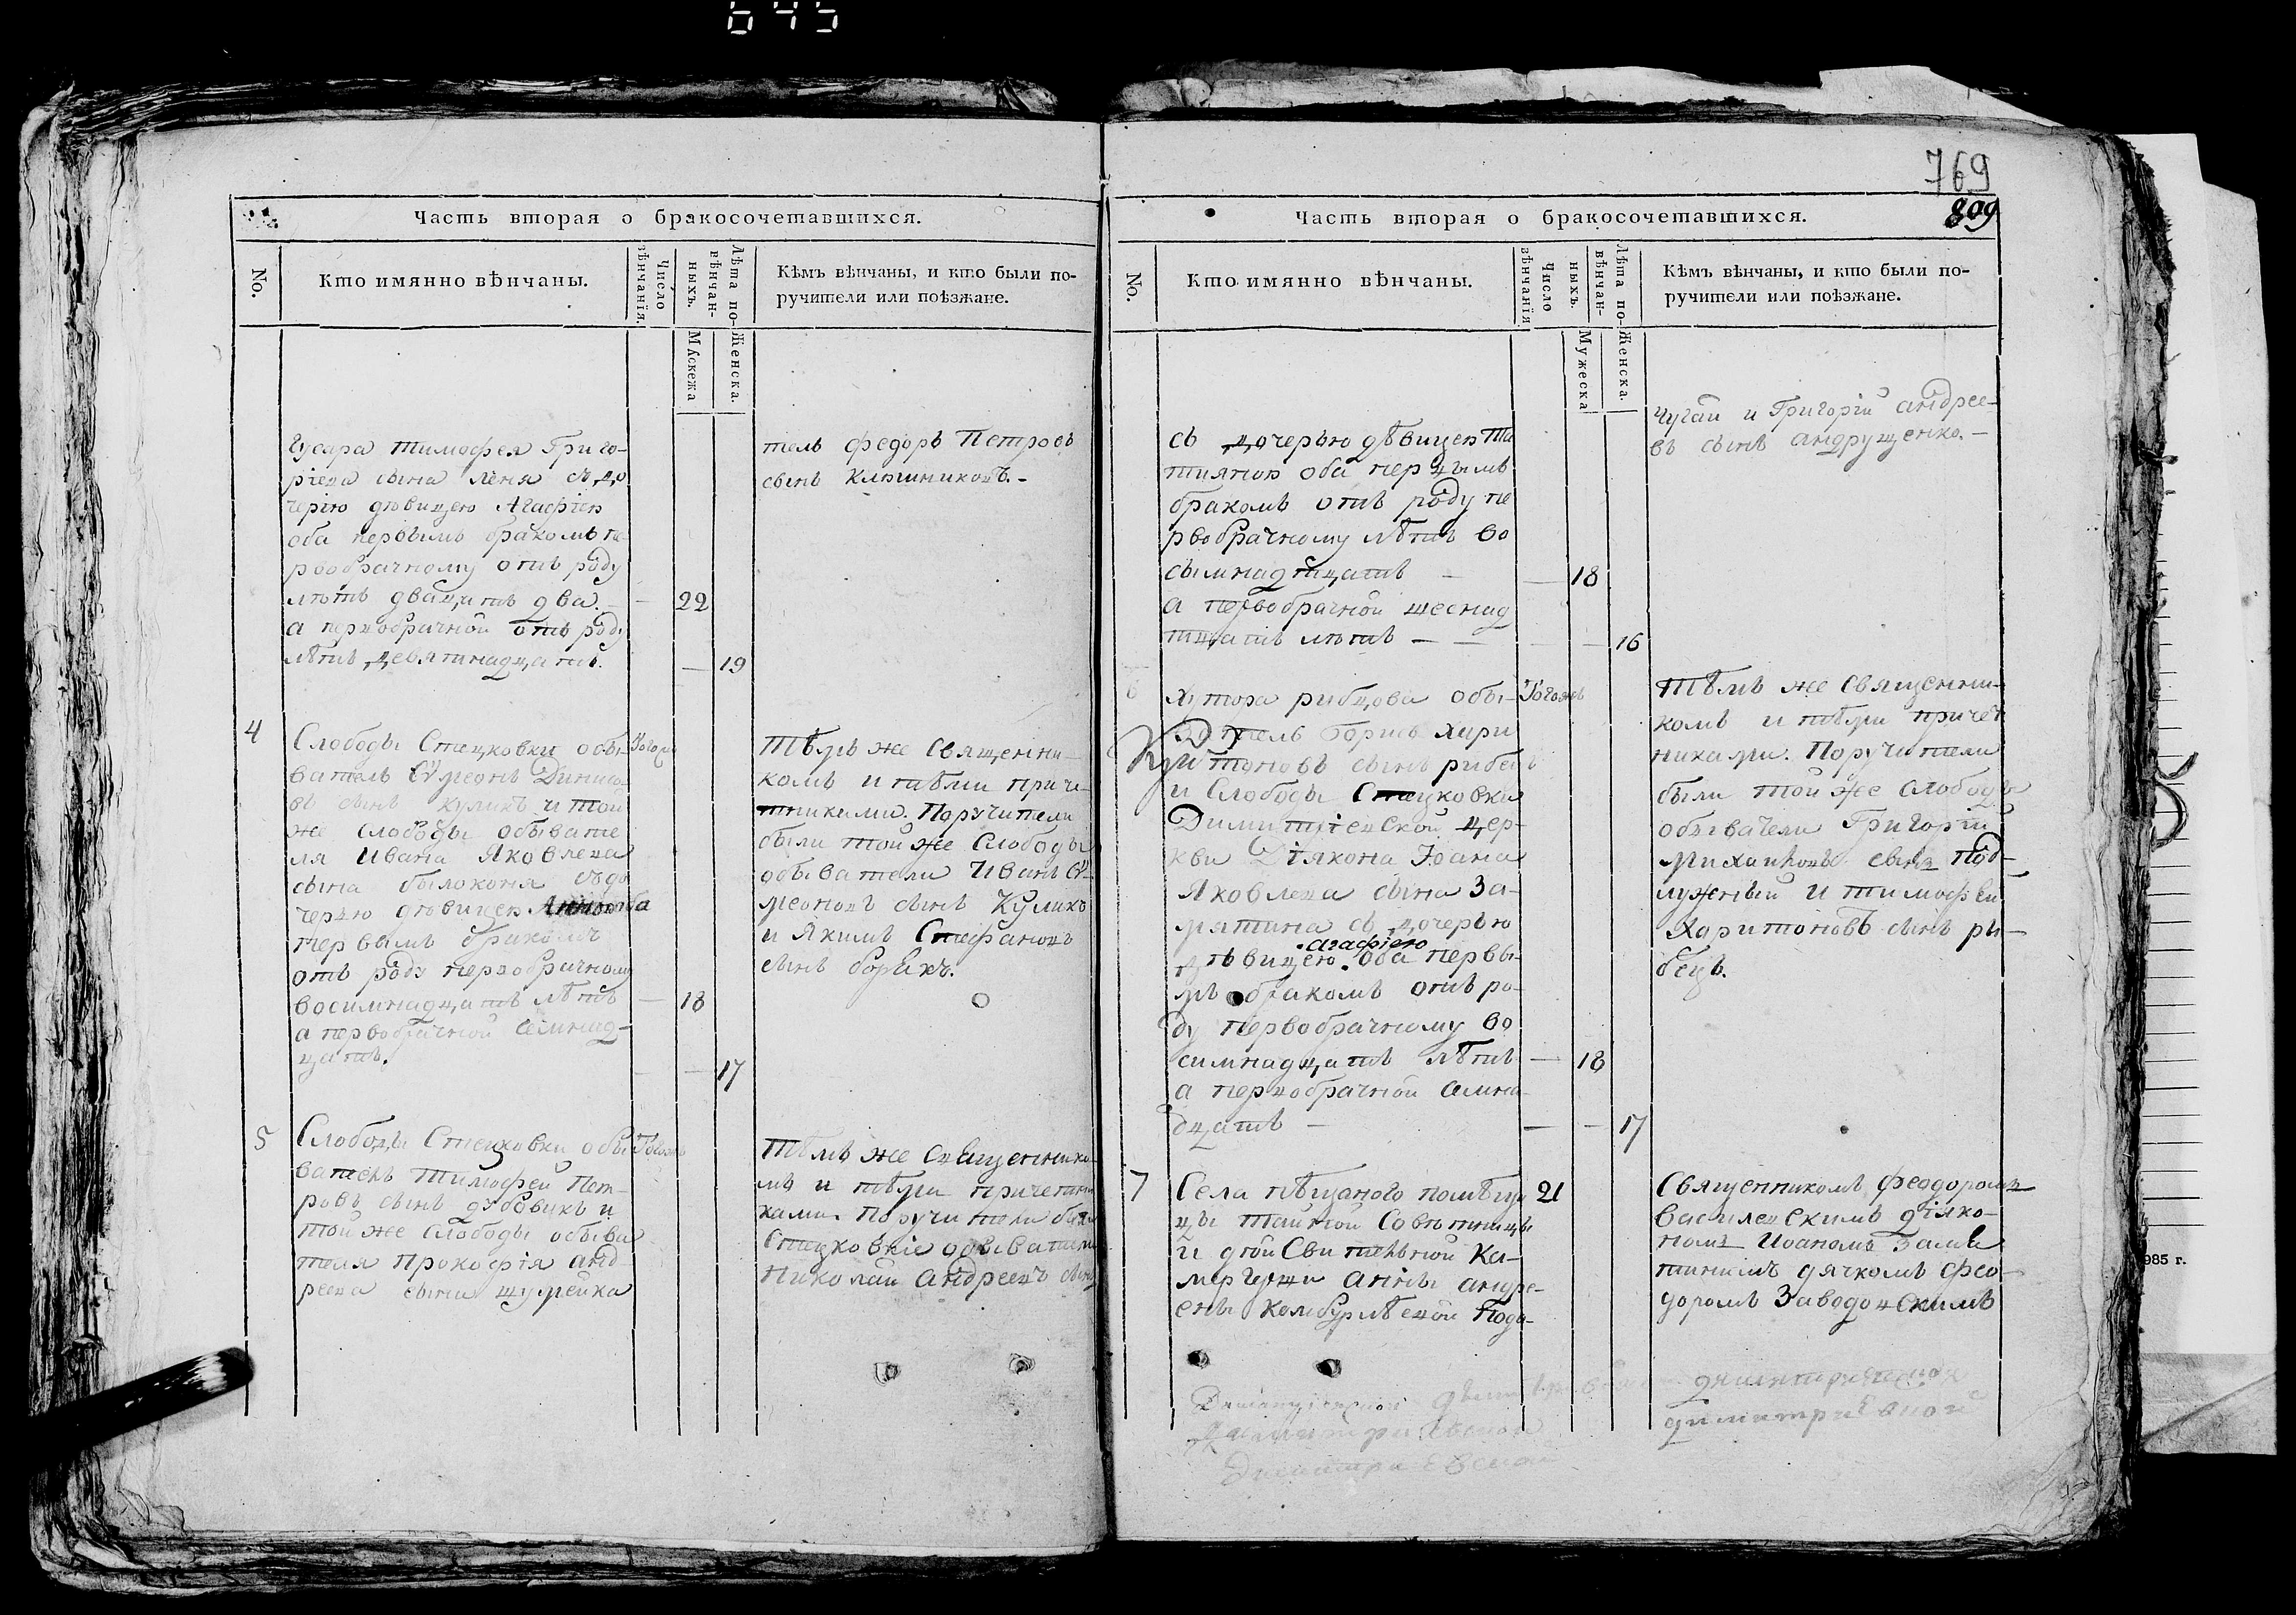 645
Часть вторая о бракосочетавшихся.
No.
Кто имянно вѣнчаны.
Число вѣнчанія.
Лѣта по-
вѣнчан-
ныхъ.
Мужеска
Женска.
Кѣмъ вѣнчаны, и кто были по-
ручители или поѣзжане.
гусара тимофея Григо-
ріева сына съ до
черію дѣвицею Агафіею
оба первымъ бракомъ пе
рвобрачному отъ роду
лѣтъ двадцать два. — 22
а первобрачной отъ роду
лѣтъ девятнадцать. — 19
тель федоръ Петровъ
сынъ
4
Слободы Стецковки обы-
ватель Сѵмеонъ Динисо-
въ сынъ куликъ и той
же слободы обывате
ля Ивана Яковлева
сына билоконя съ до
черью дѣвицею оба
первымъ бракомъ
отъ роду первобрачному
восимнадцать лѣтъ — 18
а первобрачной симнад-
цать. — 17
тѣмъ же священни-
комъ и тѣми приче-
тниками. Поручители
были той же Слободы
обыватели Иванъ Сѵ-
меоновъ сынъ Куликъ
и Якимъ Стефановъ
сынъ
5
Слободы Стецковки обы
ватель Тимофей Пет-
ровъ сынъ дубовикъ и
той же слободы обыва
теля Прокофія анд-
реева сына шумейка
тѣмъ же священнико
мъ и тѣми причетни
ками. Поручители были
Стецковкіе обыватели
Николай андреевъ сынъ
769
809
Часть вторая о бракосочетавшихся.
No.
Кто имянно вѣнчаны.
Число вѣнчанія
Лѣта по-
вѣнчан-
ныхъ.
Мужеска
Женска.
Кѣмъ вѣнчаны, и кто были по-
ручители или поѣзжане.
съ дочерью дѣвицею та
тияною оба первымъ
бракомъ отъ роду пе
рвобрачному лѣтъ во
сымнадтцать — 18
а первобрачной шеснад
тцать лѣтъ — — 16
чугай и Григорій андрее-
въ сынъ андрущенко. —
6
Хутора рибцова обы-
ватель борисъ Хари
тоновъ сынъ рибецъ
и Слободы Стецковки
Димитріевской цер-
кви Діякона Іоана
Яковлева сына За-
мятина съ дочерью
дѣвицею агафіею оба первы-
мъ бракомъ отъ ро-
ду первобрачному во
симнадцать лѣтъ — 18
а первобрачной симна-
дцать — — — 17
тѣмъ же священни-
комъ и тѣми причет
никами. Поручители
были той же слободы
обыватели Григорій
Михайловъ сынъ Под-
лужный и тимофей
Харитоновъ сынъ ри-
бецъ.
7
Села пѣщаного помѣщи
цы тайной совѣтницы
и двой Свительной Ка-
мергерши анны андре-
евны Комбурлѣевой Подд-
21
Священникомъ феодоромъ
василевскимъ діяко-
номъ Иоаномъ Замя
тинымъ дячкомъ фео-
доромъ Заводовскимъ
димитриевной
985 г.